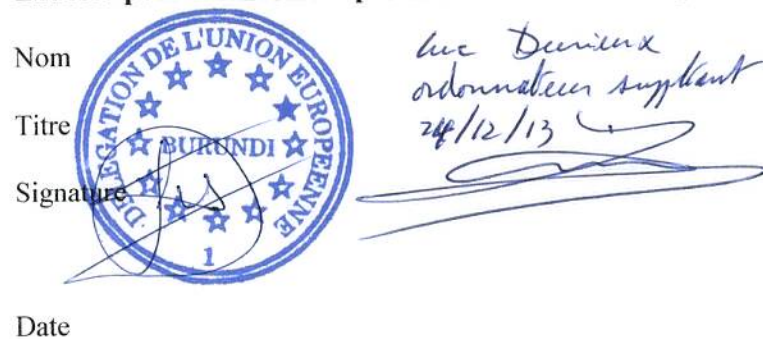 Nom
Titre
Signature
Date
DELEGATION DE L'UNION EUROPEENNE
BURUNDI
1
Luc
ordonnateur suppléant
24/12/13